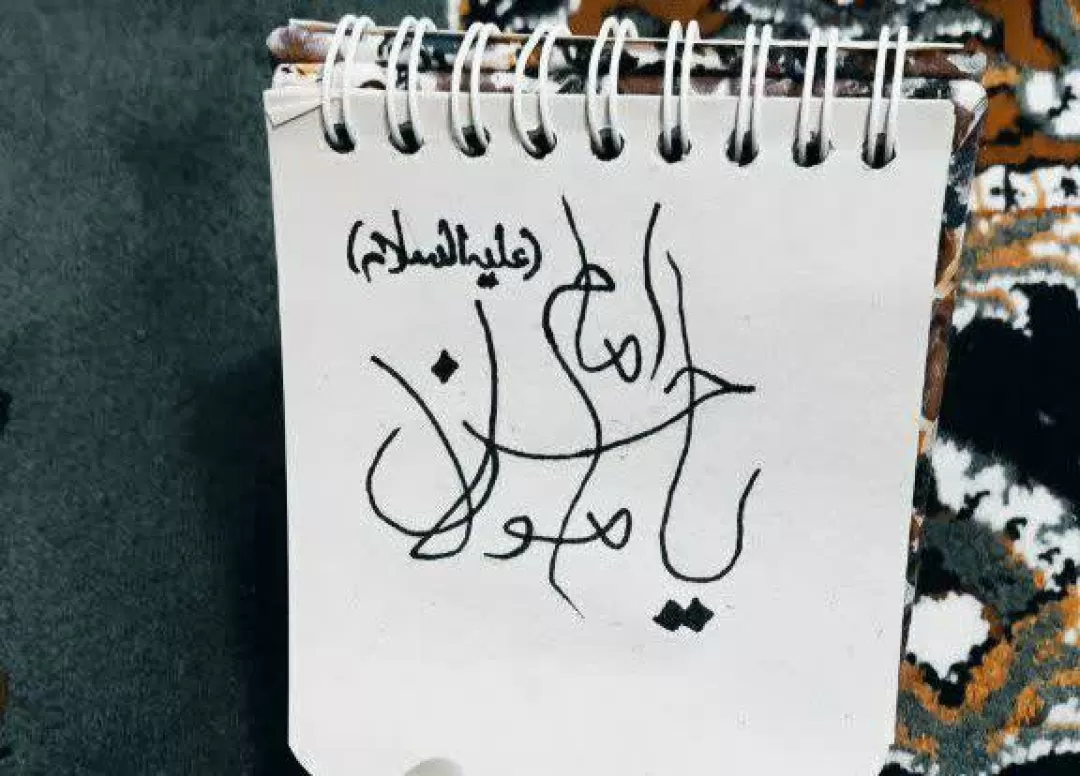 یا مولا امام حسن (علیه السلام)